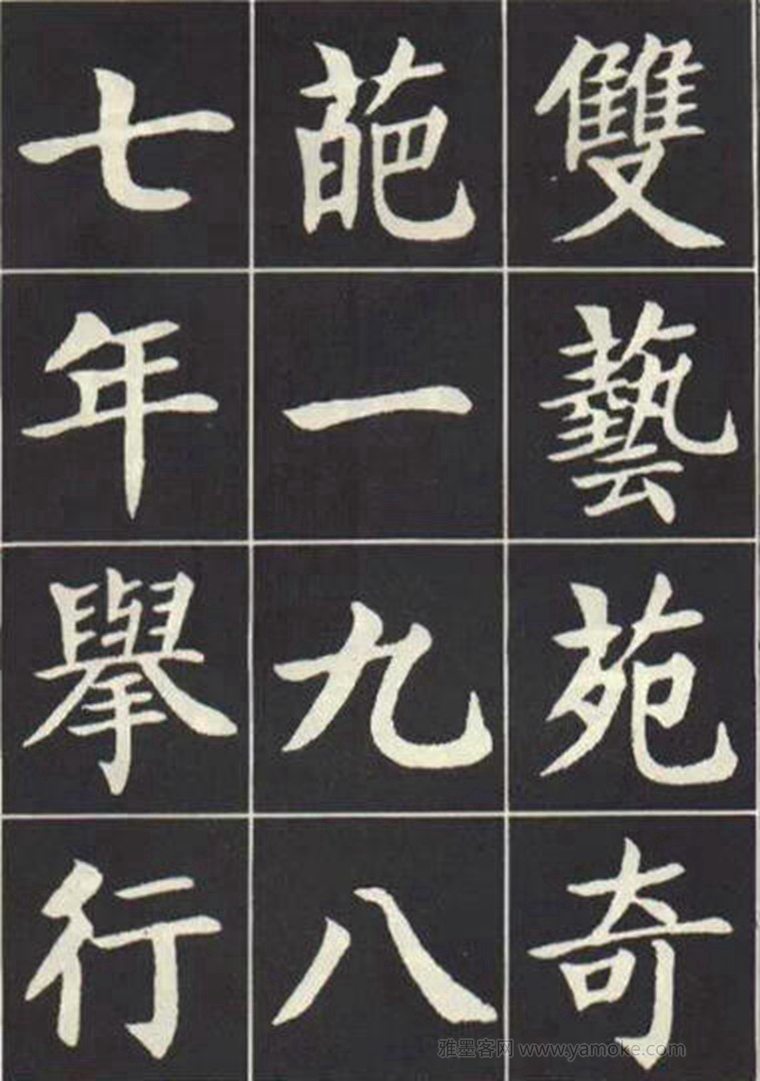 雙藝苑奇
葩一九八
七年舉行
雅墨客网 www.yamoke.com